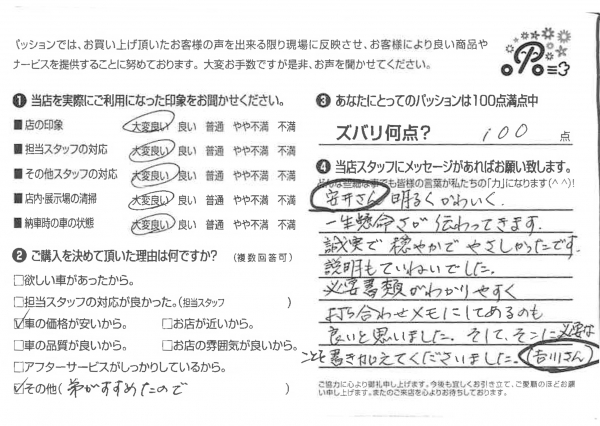 パッションでは、お買い上げ頂いたお客様の声を出来る限り現場に反映させ、お客様により良い商品や
サービスを提供することに努めております。大変お手数ですが是非、お声を聞かせてください。
❶ 当店を実際にご利用になった印象をお聞かせください。
■ 店の印象 大変良い 良い 普通 やや不満 不満
■ 担当スタッフの対応 大変良い 良い 普通 やや不満 不満
■ その他スタッフの対応 大変良い 良い 普通 やや不満 不満
■ 店内・展示場の清掃 大変良い 良い 普通 やや不満 不満
■ 納車時の車の状態 大変良い 良い 普通 やや不満 不満
❷ ご購入を決めて頂いた理由は何ですか? (複数回答可)
□欲しい車があったから。
□担当スタッフの対応が良かった。(担当スタッフ )
☑車の価格が安いから。 □お店が近いから。
□車の品質が良いから。 □お店の雰囲気が良いから。
□アフターサービスがしっかりしているから。
☑その他( 弟がすすめたので )
❸ あなたにとってのパッションは100点満点中
ズバリ何点? 100 点
❹ 当店スタッフにメッセージがあればお願い致します。
どんな些細な事でも皆様の言葉が私たちの「力」になります(^ ^)!
安井さん 明るくかわいく、
一生懸命さが伝わってきます。
誠実で穏やかでやさしかったです。
説明もていねいでした。
必要書類がわかりやすく
打ち合わせメモにしてあるのも
良いと思いました。そして、そこに必要な
ことを書き加えてくださいました。(吉川さん)
ご協力に心より御礼申し上げます。今後も宜しくお引き立て、ご愛顧のほどお願い申し上げます。またのご来店を心よりお待ちしております。